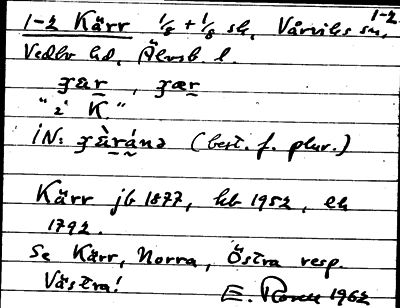 1-2
1-2 Kärr 1/8 + 1/8 sk, Vårviks sn,
Vedbo hd, Älvsb. l.
χær, χær
"i K."
IN: χæ̀ránə (best. f. plur.)
Kärr jb 1877, kb 1952, ek
1792.
Se Kärr, Norra, Östra resp.
Västra!
E. 1962